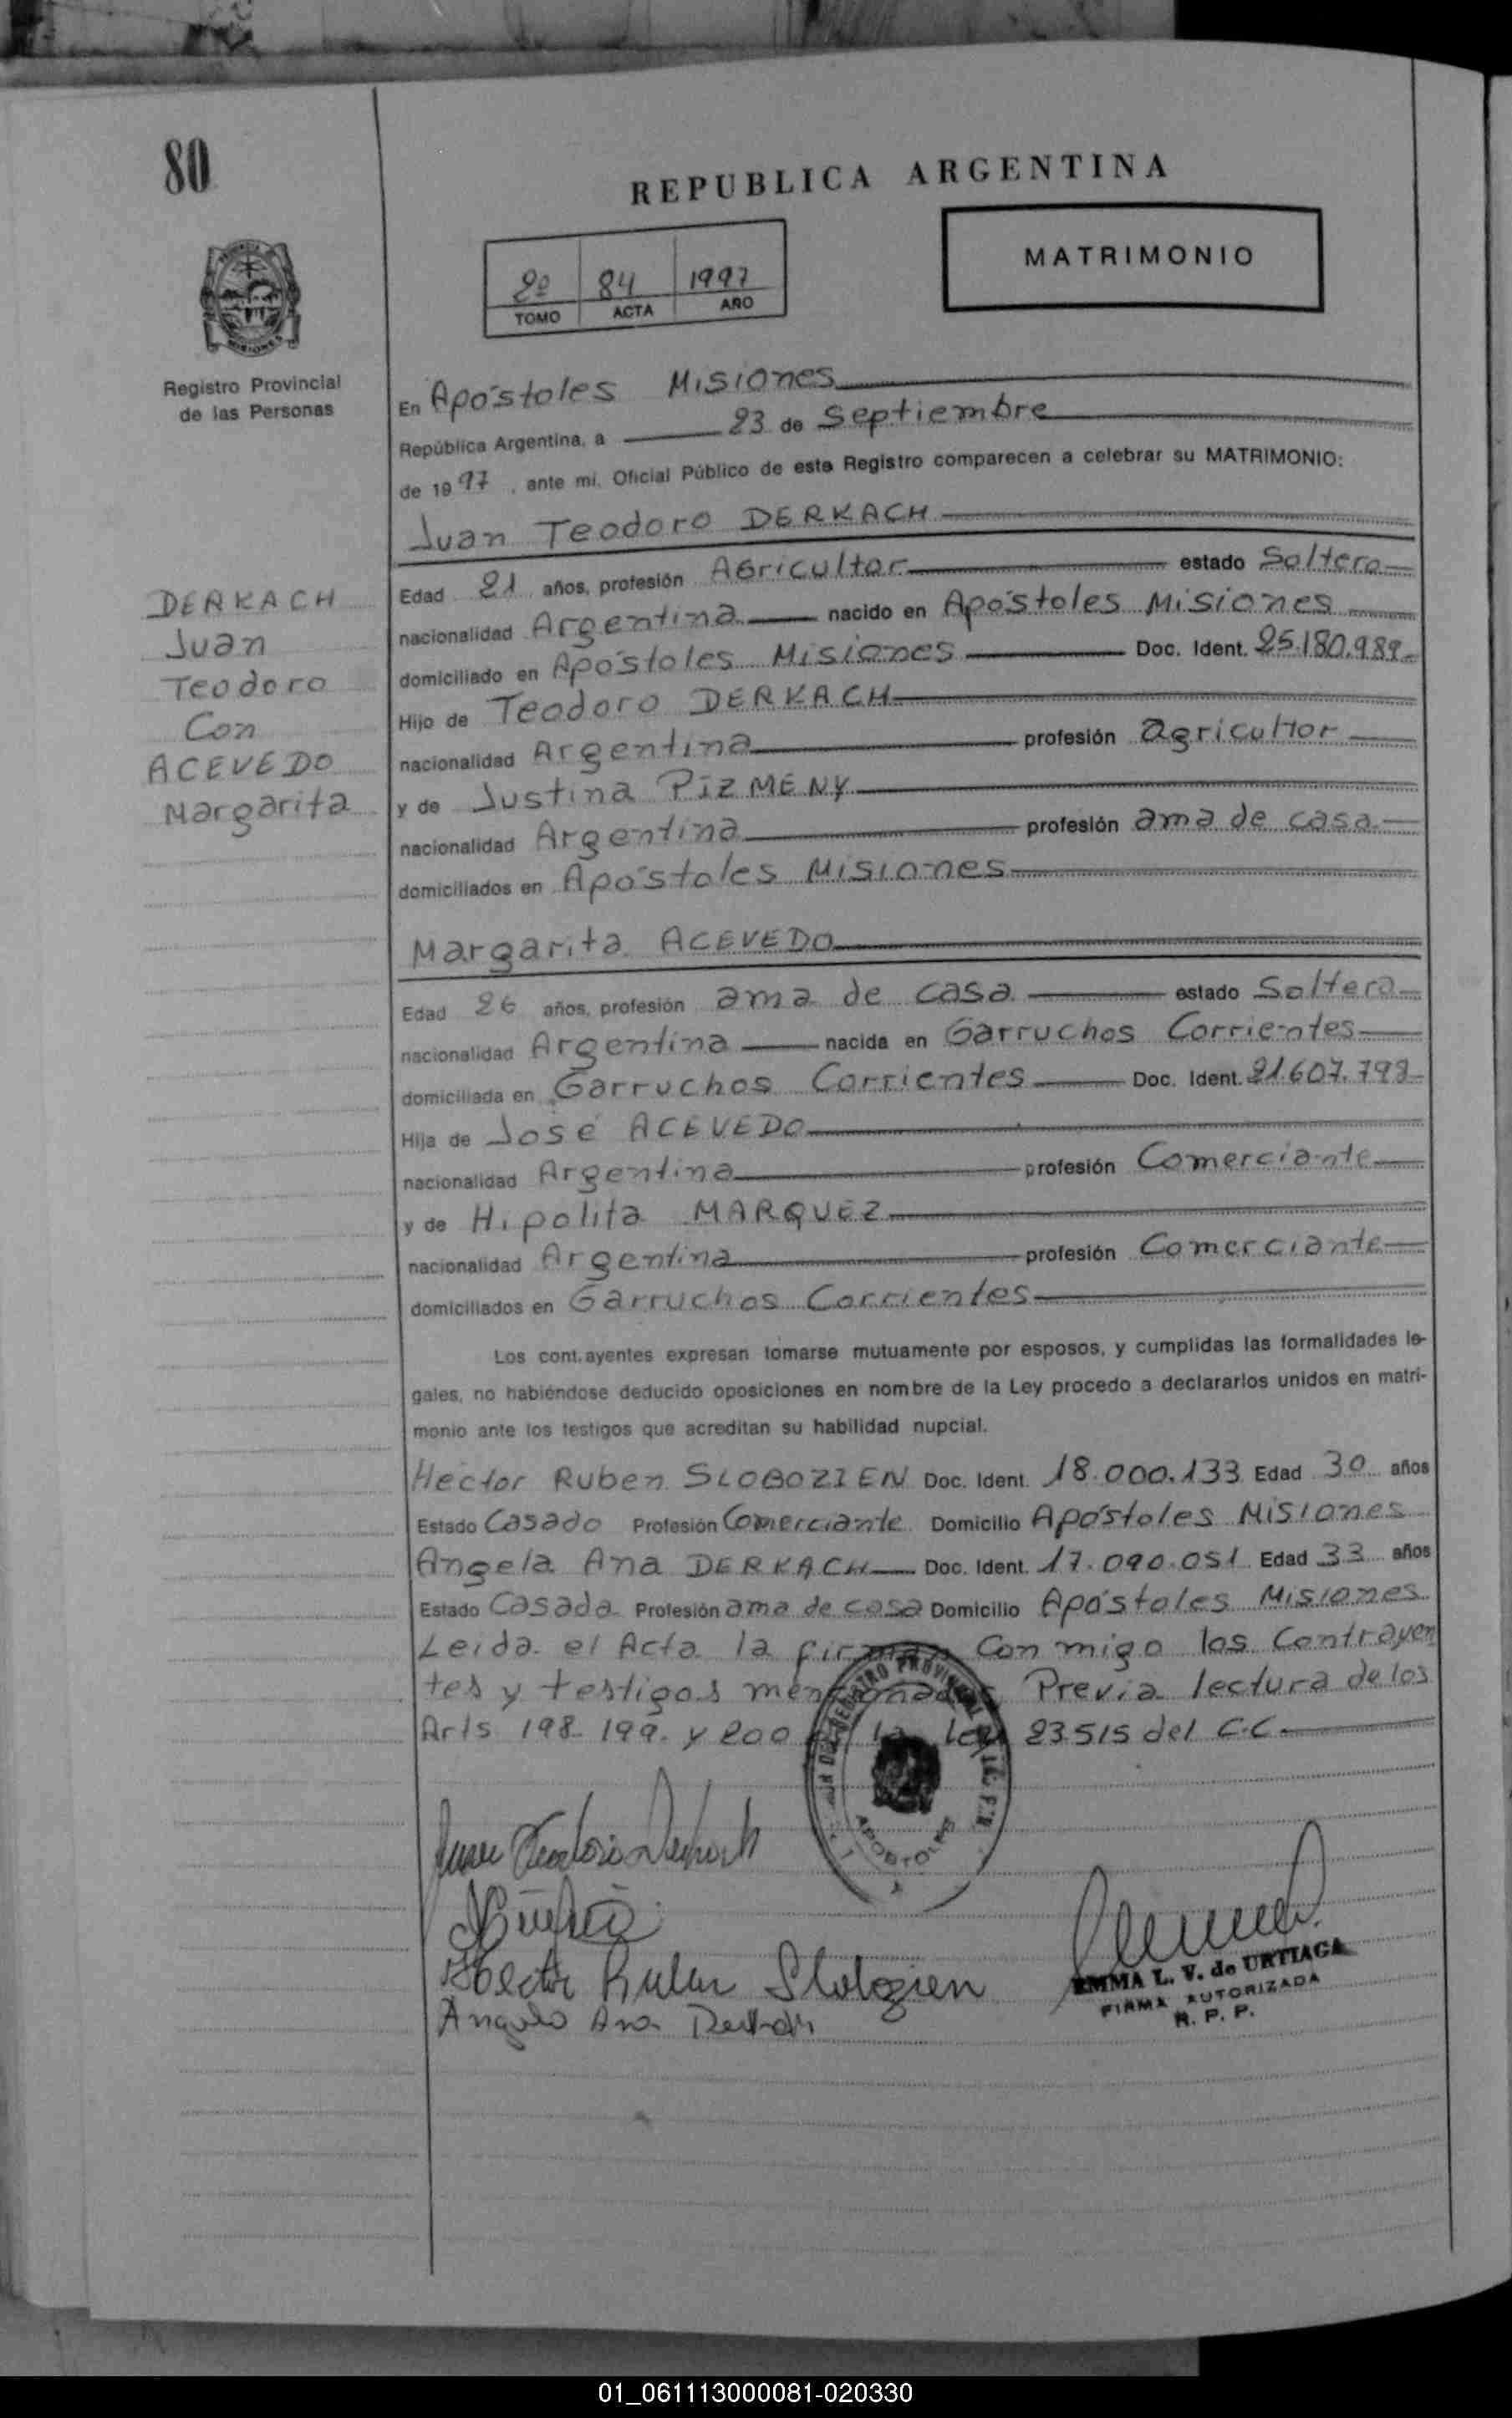 80
REPUBLICA ARGENTINA
MATRIMONIO
2º 84 1997
TOMO ACTA AÑO
Registro Provincial
de las Personas
DERKACH
Juan
Teodoro
Con
ACEVEDO
Margarita
En Apóstoles Misiones
República Argentina, a 23 de Septiembre
de 1997, ante mí, Oficial Público de este Registro comparecen a celebrar su MATRIMONIO:
Juan Teodoro DERKACH
Edad 21 años, profesión Agricultor estado Soltero
nacionalidad Argentina nacido en Apóstoles Misiones
domiciliado en Apóstoles Misiones Doc. Ident. 25.180.989
Hijo de Teodoro DERKACH
nacionalidad Argentina profesión agricultor
y de Justina PIZMENY
nacionalidad Argentina profesión ama de casa
domiciliados en Apóstoles Misiones
Margarita ACEVEDO
Edad 26 años, profesión ama de casa estado Soltera
nacionalidad Argentina nacida en Garruchos Corrientes
domiciliada en Garruchos Corrientes Doc. Ident. 21.607.792
Hija de José ACEVEDO
nacionalidad Argentina profesión Comerciante
y de Hipolita MARQUEZ
nacionalidad Argentina profesión Comerciante
domiciliados en Garruchos Corrientes
Los cont.ayentes expresan tomarse mutuamente por esposos, y cumplidas las formalidades le-
gales, no habiéndose deducido oposiciones en nombre de la Ley procedo a declararlos unidos en matri-
monio ante los testigos que acreditan su habilidad nupcial.
Hector Ruben SLOBOZIEN Doc. Ident. 18.000.133 Edad 30 años
Estado Casado Profesión Comerciante Domicilio Apóstoles Misiones
Angela Ana DERKACH Doc. Ident. 17.090.051 Edad 33 años
Estado Casada Profesión ama de casa Domicilio Apóstoles Misiones
Leida el Acta la firman Con migo los Contrayen
tes y testigos mencionados Previa lectura de los
Arts 198- 199. y 200 de la Ley 23515 del C.C.
APOSTOLES
Juan Teodoro Derkach
Hector Ruben Slobozien
Angela Ana Derkach
EMMA L. V. de URTIAGA
FIRMA AUTORIZADA
R. P. P.
01_061113000081-020330